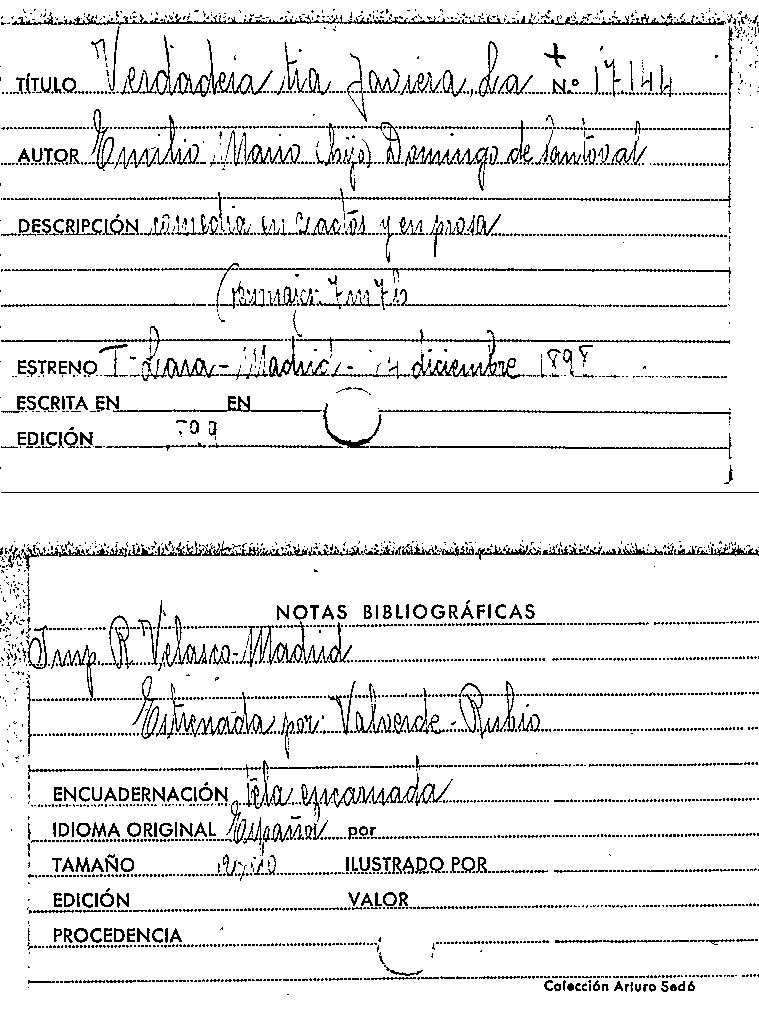 TÍTULO Verdadera tia Javiera, La + N.º 17144
AUTOR Emilio Mario (hijo) Domingo de Santoval
DESCRIPCIÓN comedia en actos y en prosa
7m 7h
ESTRENO T- Lara - Madrid - 14 diciembre 1898
ESCRITA EN EN
EDICIÓN
NOTAS BIBLIOGRÁFICAS
Imp R Velasco-Madrid
Estrenada por: Valverde-Rubio
ENCUADERNACIÓN tela encarnada
IDIOMA ORIGINAL Español por
TAMAÑO ILUSTRADO POR
EDICIÓN VALOR
PROCEDENCIA
Colección Arturo Sedó